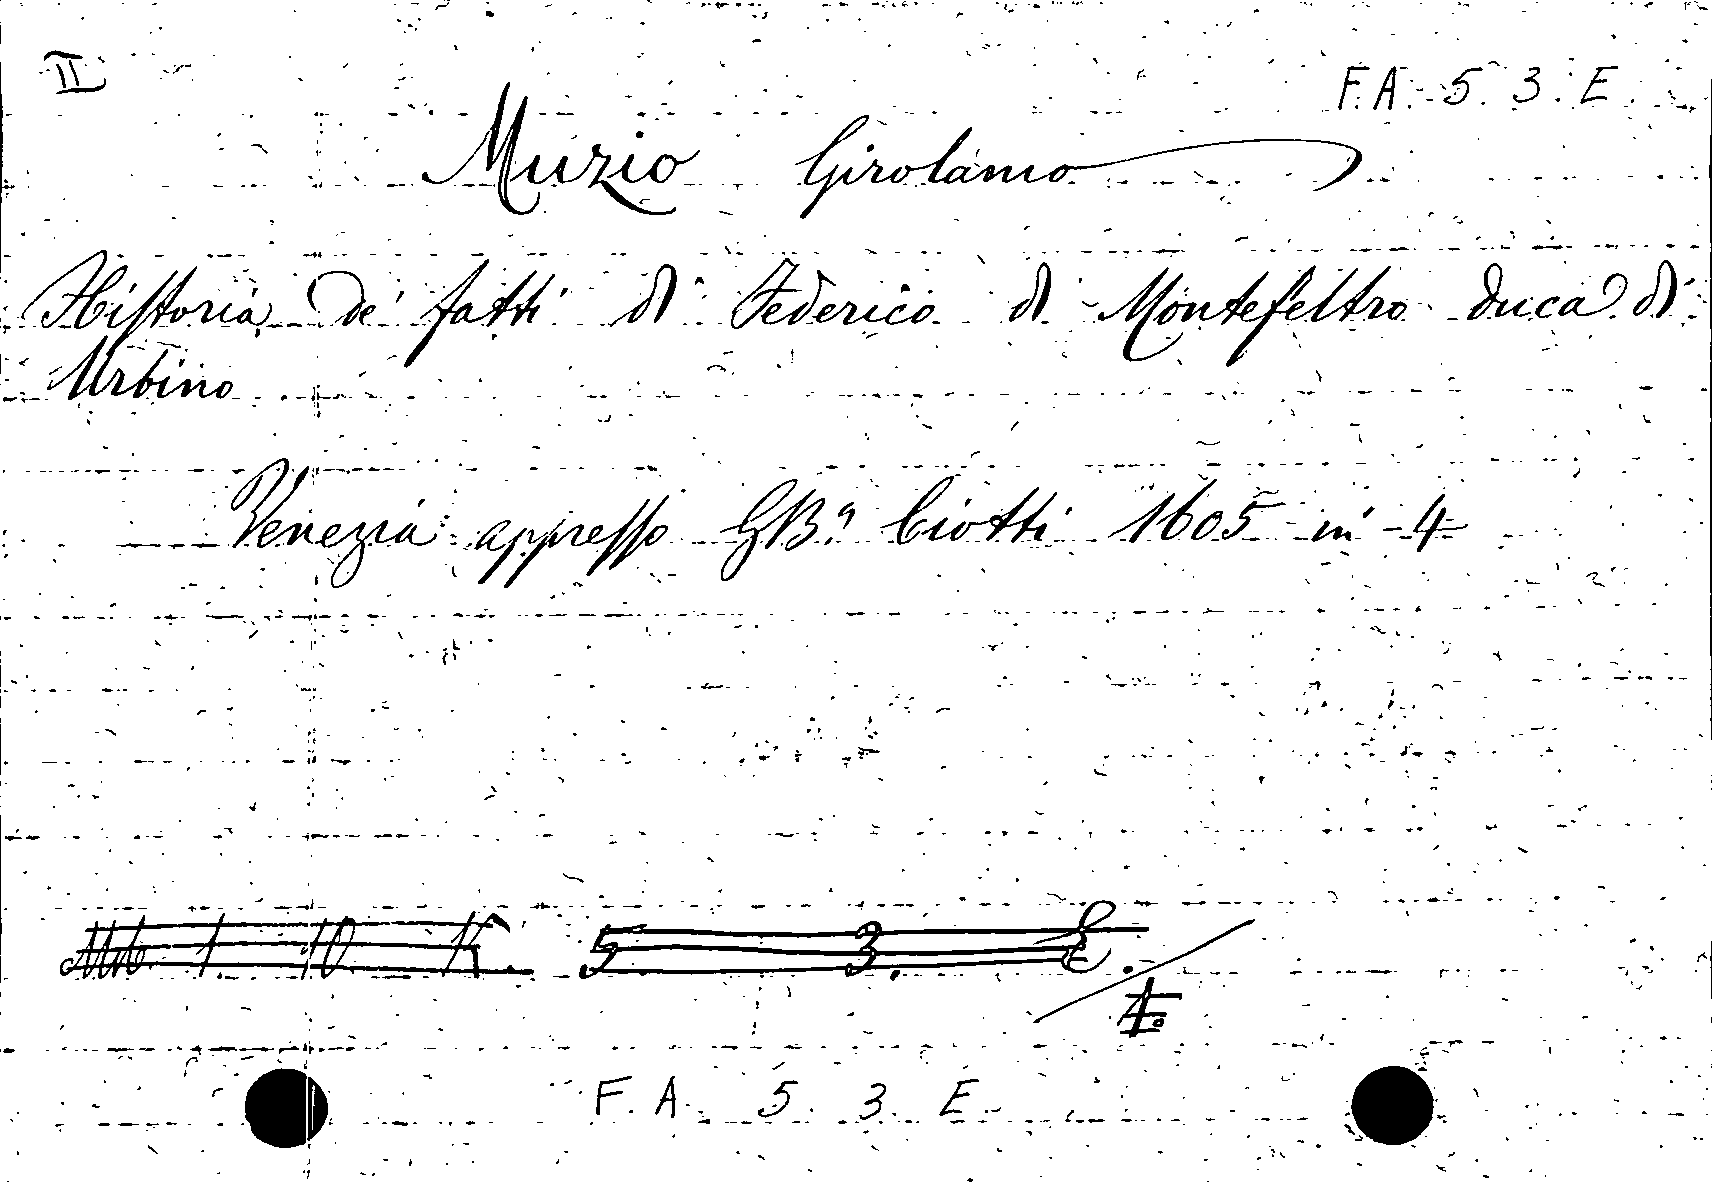 II
F. A. 5. 3. E.
Muzio Girolamo
Historia de' fatti di Federico di Montefeltro duca di
Urbino
Venezia appresso G.B.a Ciotti 1605 in 4
5 3. E.
F. A. 5. 3. E.